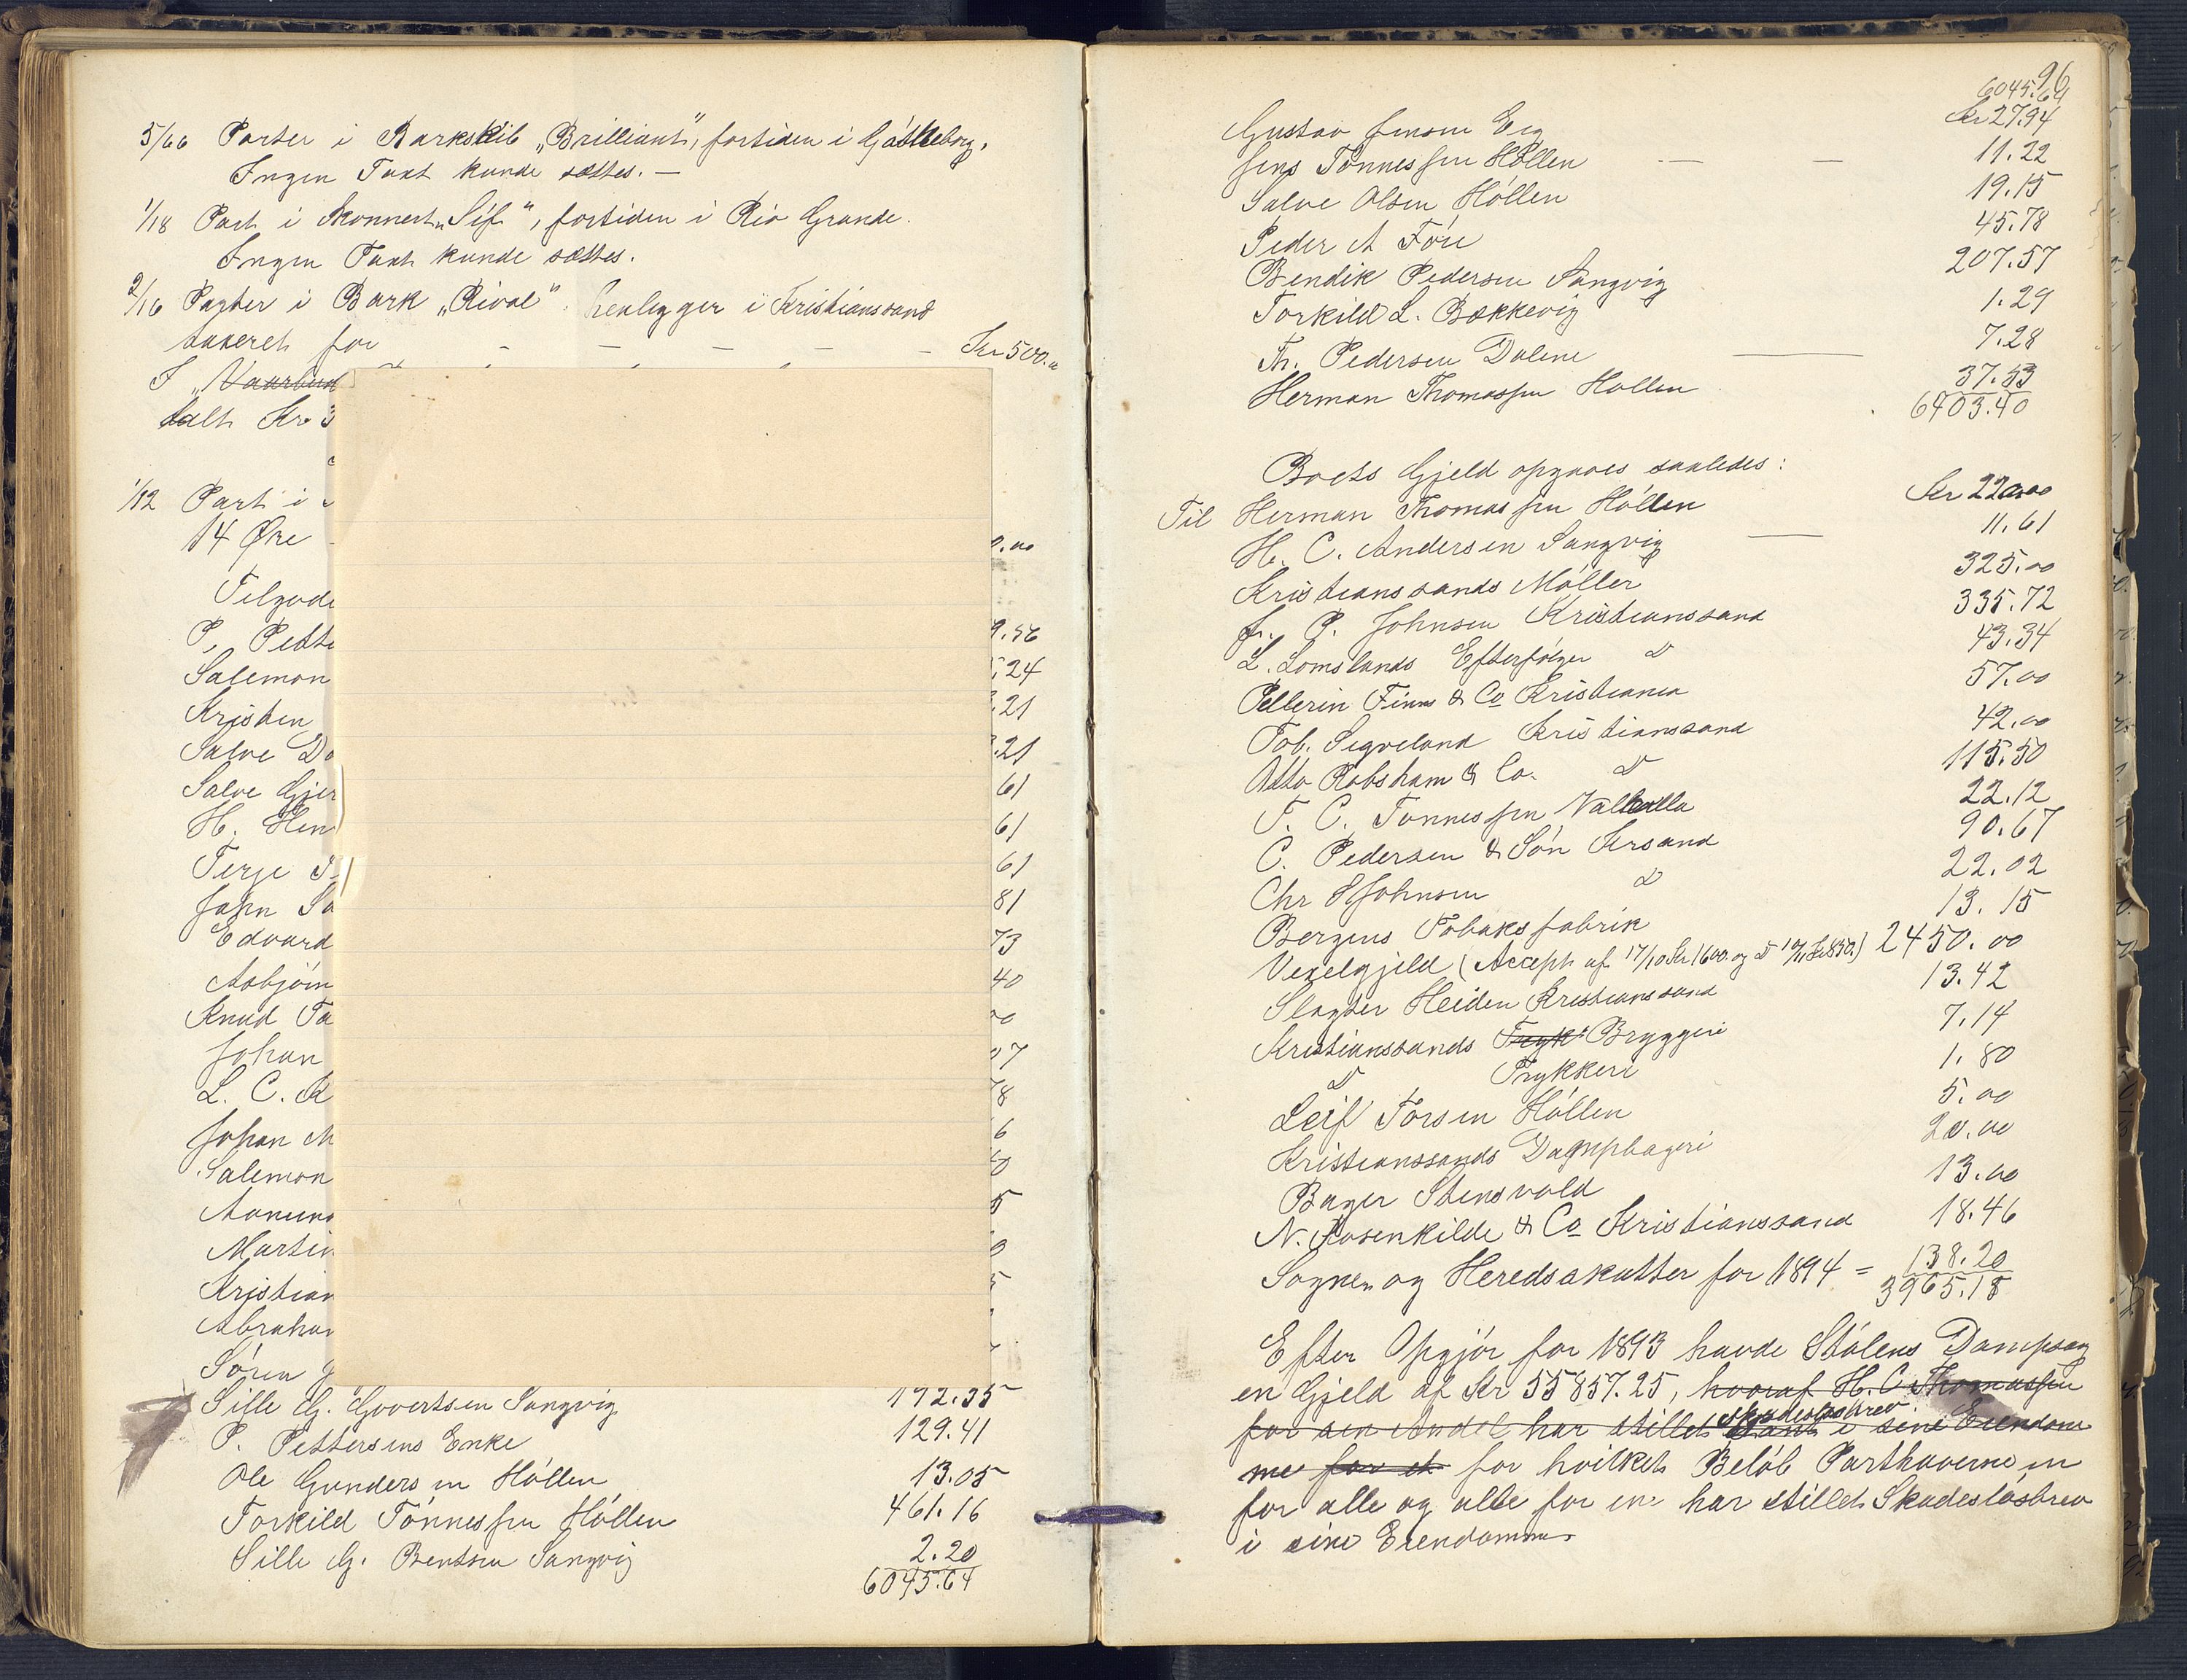 5/66 Parter i Barkskib „Brilliant“, fortiden i Gøtheborg.
Ingen Taxt kunde sættes. —
1/18 Part i Skonnert „Sif“, fortiden i Rio Grande.
Ingen Taxt kunde sættes.
2/16 Parter i Bark „Rival“ henligger i Kristianssand
taxeret for — — — — — Kr 500.
I „Vaarbud
talt Kr 3
1/12 Part i
14 Øre
0.00
Tilgode
P. Petter 9.56
Salemon .24
Kristen .21
Salve Do .21
Salve Gjer 61
H. Hen 61
Terje 61
John Sa 81
Edvard 73
Asbjörn 40
Knud Ta 00
Johan 07
L. C. R 78
Johan M 6
Salemon 40
Aanund 5
Martin 0
Kristian 5
Abraham
Sören
Sille G. Govertsen Langvig 192.35
P. Pettersens Enke 129.41
Ole Gundersen Höllen 13.05
Torkild Tönnessen Höllen 461.16
Sille G. Bentsen Langvig 2.20
6045.64
96
6045.64
Gustav Jensen Eeg Kr 27.94
Jens Tönnessen Höllen — — 11.22
Salve Olsen Höllen 19.15
Peder A Töre 45.78
Bendik Pedersen Langvig 207.57
Torkild L. Bakkevig 1.29
Th. Pedersen Dalene — 7.28
Herman Thomassen Hollen 37.53
6403.40
Boets Gjeld opgaves saaledes:
Til Herman Thomassen Höllen Kr 220.00
H. C. Andersen Langvig — 11.61
Kristianssands Möller 325.00
L. P. Johnsen Kristianssand 335.72
L. Lomslands Efterfölger D 43.34
Pellerin Finne & Co Kristiania 57.00
Tob. Segveland Kristianssand 42.00
Otto Robsham & Co. D 115.50
T. C. Tönnessen Valhalla 22.12
C. Pedersen & Sön Krsand 90.67
Chr Johnsen D 22.02
Bergens Tobaksfabrik 13.15
Vexelgjeld (Accept af 17/10 Kr 1600. og D 10/11 Kr 850.) 2450.00
Slagter Heiden Kristianssand 13.42
Kristianssands Tryk Bryggeri 7.14
D Trykkeri 1.80
Leif Torsen Höllen 5.00
Kristianssands Dampbageri 20.00
Bager Stensvold 13.00
N. Rosenkilde & Co Kristianssand 18.46
Sogne og Heredsskatter for 1894 = 138.20
3965.18
Efter Opgjör for 1893 havde Stölens Dampsag
en Gjeld af Kr 55857.25, hvoraf H. C. Thomassen
for sin Andel har stillet skadeslösbrev i sine Eiendom
me for et for hvilket Belöb Parthaverne en
for alle og alle for en har stillet Skadeslösbrev
i sine Eiendomme.